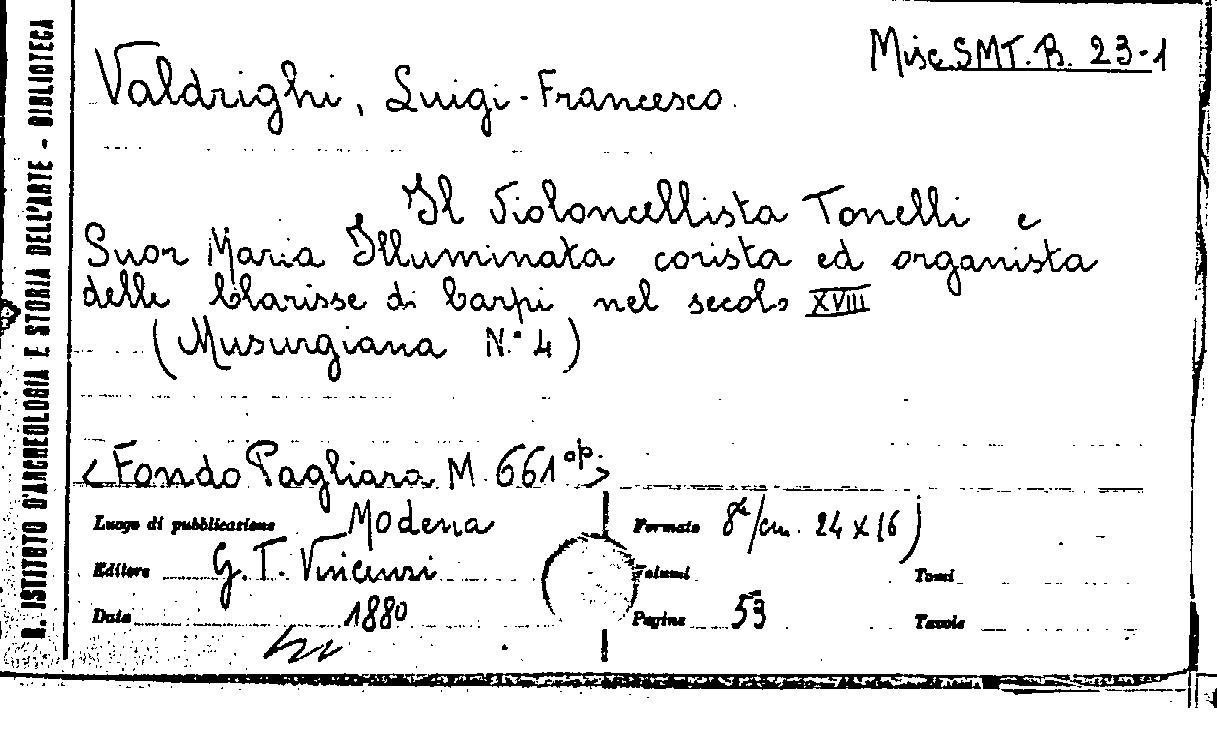 Misc. SMT. B. 23-1
Valdrighi, Luigi-Francesco.
Il violoncellista Tonelli e
Suor Maria Illuminata corista ed organista
delle Clarisse di Carpi nel secolo XVIII
(Musurgiana N.° 4)
< Fondo Pagliara M. 661 op. >
Luogo di pubblicazione Modena
Formato 8°/cm. 24 x 16)
Editore G. T. Vincenzi
Volumi
Tomi
Data 1880
Pagine 53
Tavole
R. ISTITUTO D'ARCHEOLOGIA E STORIA DELL'ARTE - BIBLIOTECA